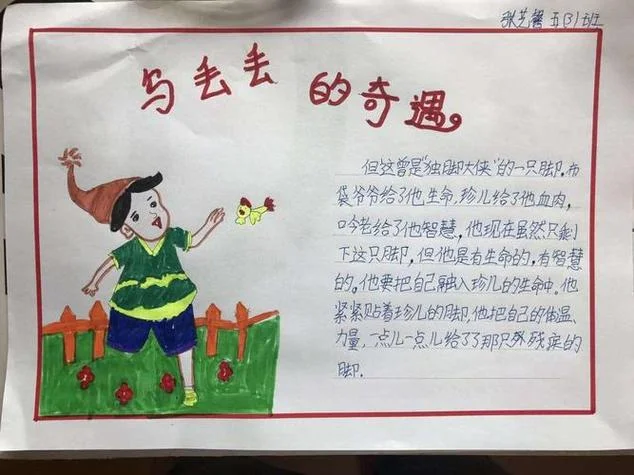 张艺馨 五(3)班
乌丢丢的奇遇
但这曾是"独脚大侠"的一只脚,布
袋爷爷给了他生命,珍儿给了他血肉,
吟老给了他智慧,他现在虽然只剩
下这只脚,但他是有生命的,有智慧
的,他要把自己融入珍儿的生命中。他
紧紧贴着珍儿的脚,他把自己的体温、
力量,一点儿一点儿给了那只残疾的
脚.